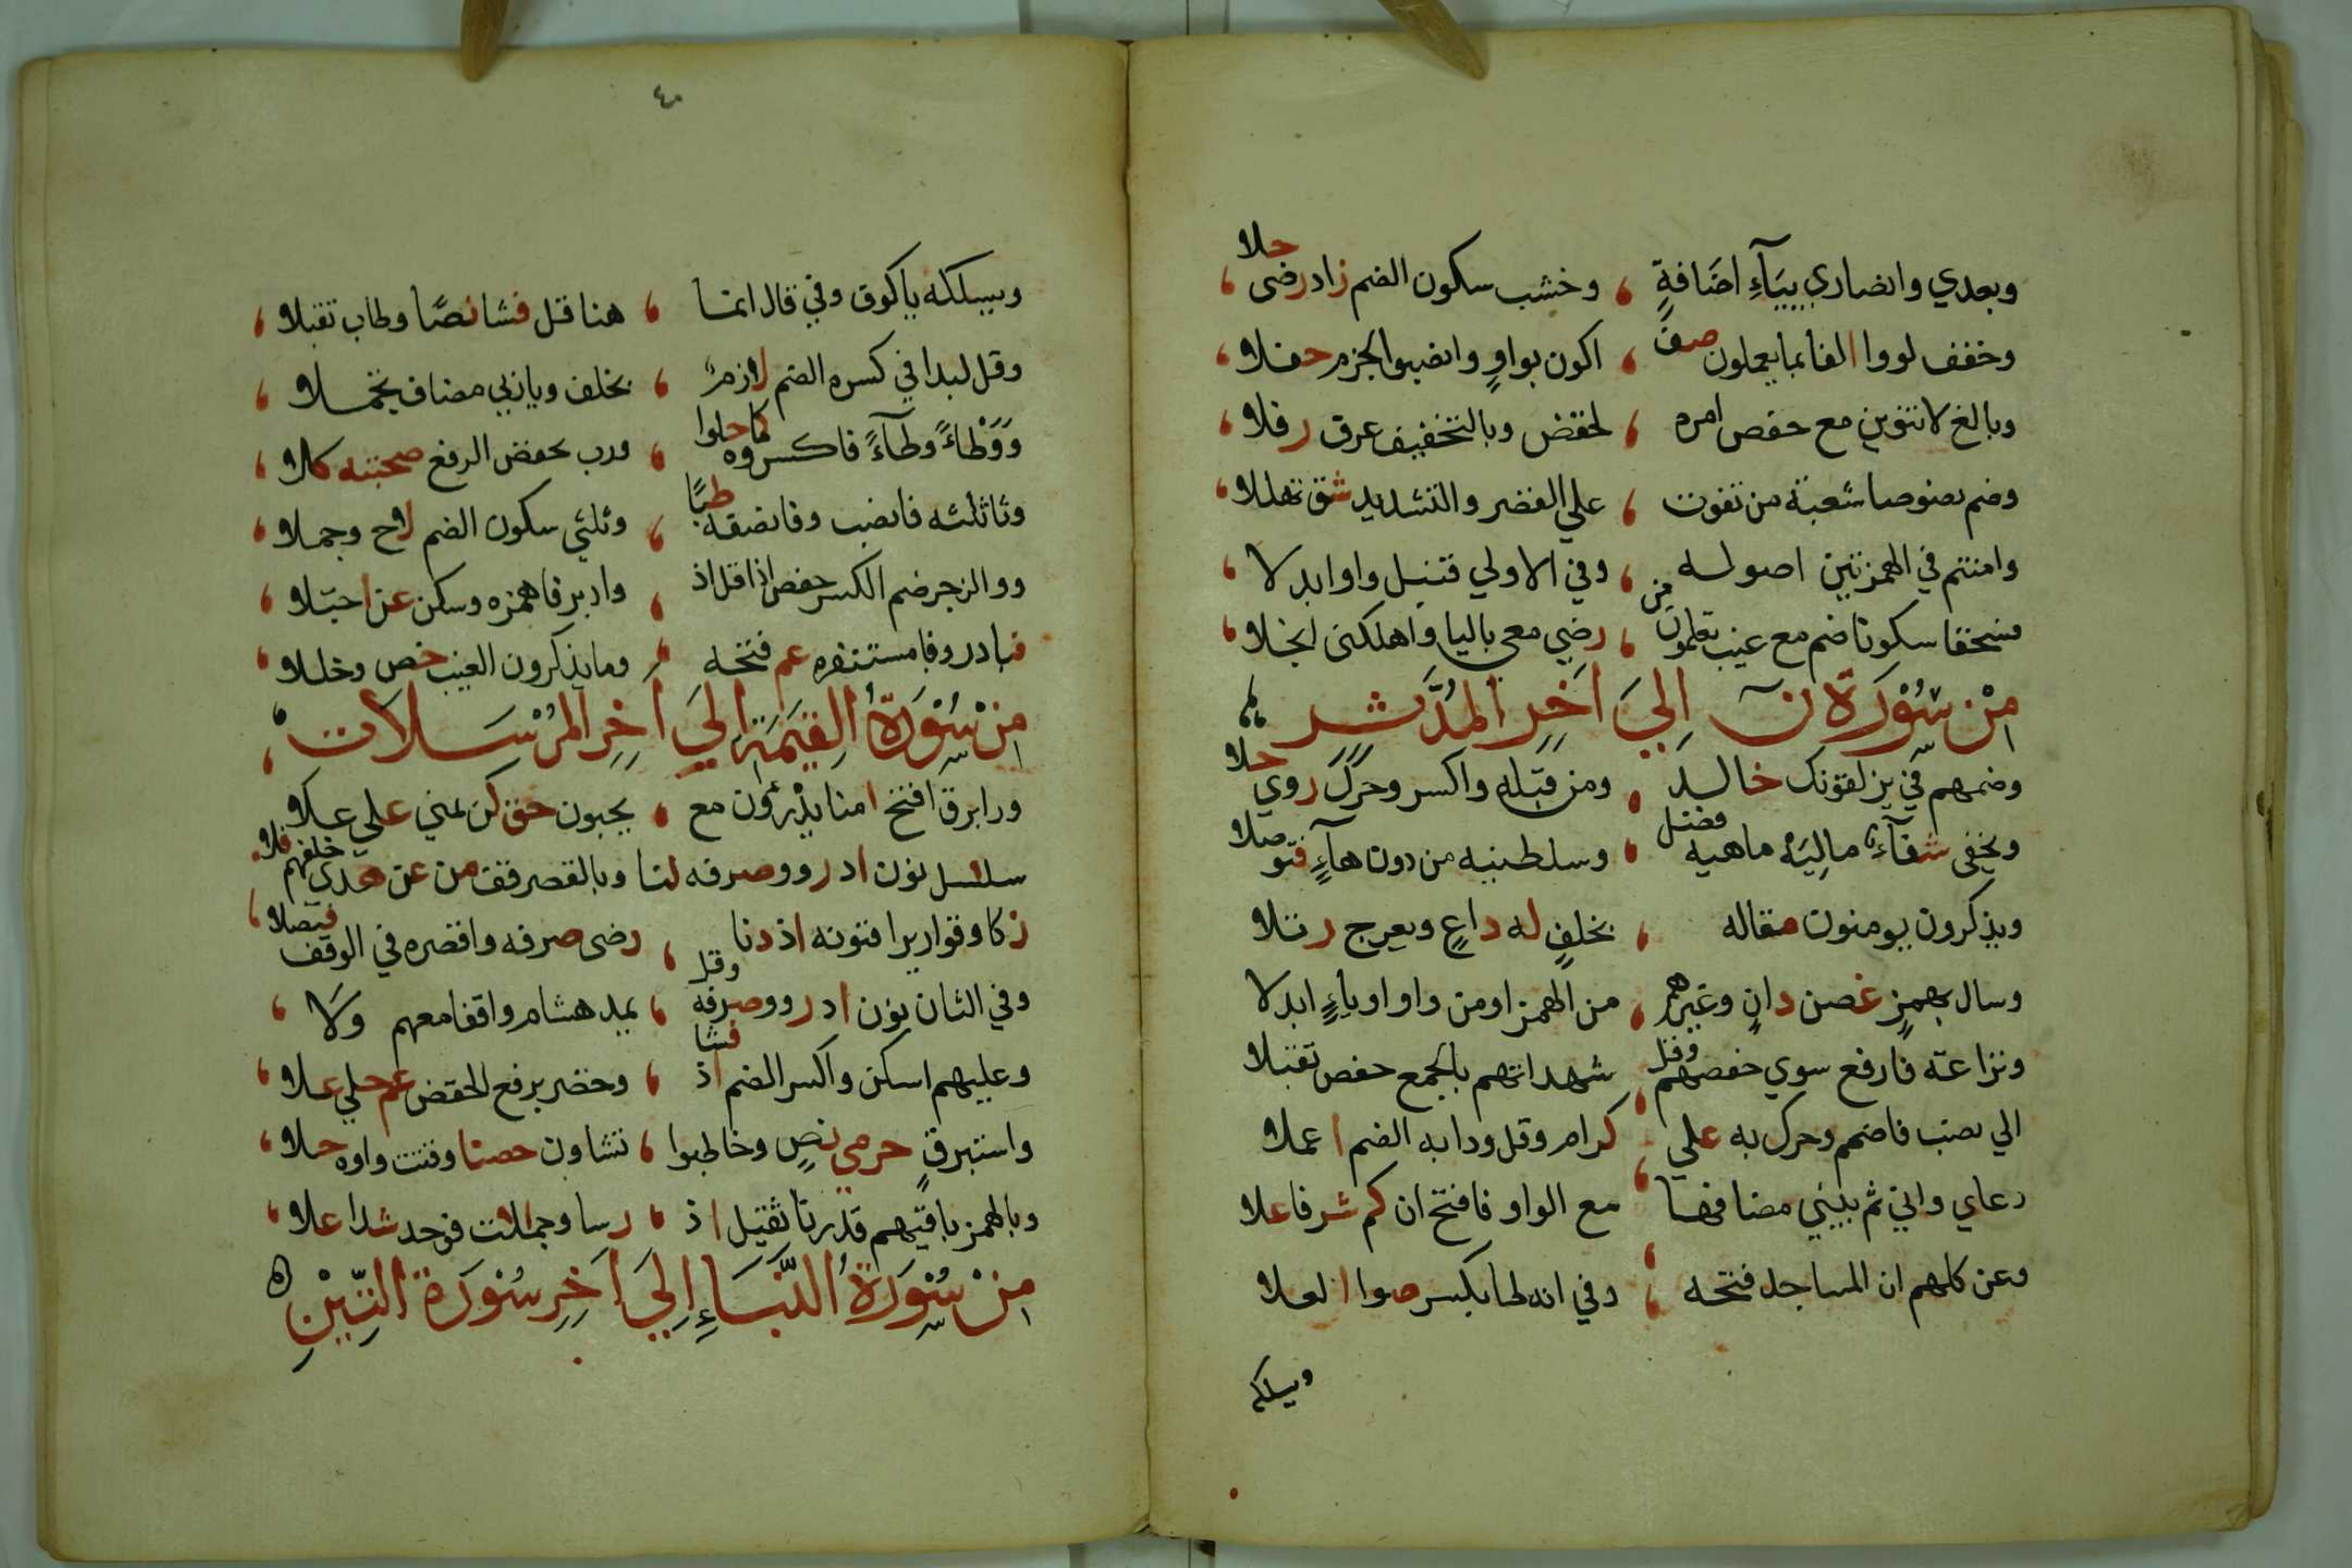 وبعدي وانصاري بيآءِ اضَافةٍ ، وخشب سكون الضم زاد رضى حلا
وخفف لووا الفا بما يعملون صف ، اكون بواوٍ وانصبوا الجزم حفلا
وبالغ لا تنوين مع حفص امره ، لحفض وبالتخفيف عرق رفلا
وضم نصوصا شعبة من تفوت ، علي القصر والتشديد شق تهللا
وامنتم في الهمزتين اصوله ، وفي الاولي قنبل واوا ابدلا
فسحقا سكونا ضم مع غيب تعلمون من ، رضي معي باليا واهلكنى انجلا
مِنْ سُوْرَةِ نۤ اِلَيَ اَخِرِ المُدَّثِر
وضمهم في يزلقونك خالد ، ومن قبله واكسر وحرك روي حلا
ويخفى شفآء ماليه ماهيه فصل ، وسلطنيه من دون هآءٍ فتوصلا
ويذكرون يومنون مقاله ، بخلفٍ له داعٍ ويعرج رتلا
وسال بهمزٍ غصن دانٍ وغيرهم ، من الهمز اومن واو اوياءٍ ابدلا
ونزاعة فارفع سوي حفصهم وقل شهداتهم بالجمع حفص تقبلا
الي نصب فاضمم وحرك به علي ، كرام وقل ودا به الضم اعملا
دعاي واني ثم بيتي مضافها ، مع الواو فافتح ان كم شرفا علا
وعن كلهم ان المساجد فتحه ، وفي انه لما بكسر صوا العلا
ويسلكه
٤٠
ويسلكه يا كوق وفي قال انما ، هنا قل فشا نصًا وطاب تقبلا
وقل لبدا في كسره الضم لازم ، بخلف ويا ربي مضاف تجملا
وَوَطْاءً وطآءً فاكسروه كما حلوا ، ورب بحفض الرفع صحبته كلا
وثا ثلثه فانصب وفا نصفه ظبًا ، وثلثي سكون الضم لاح وجملا
ووالرجز ضم الكسر حفص اذا قل اذ ، وادبر فاهمزه وسكن عن اجتلا
فبادر وفا مستنفره عم فتحه ، وما يذكرون الغيب خص وخللا
مِنْ سُوْرَةُ القِيٰمَةِ اِلَيَ اَخِرِ المُرْسَلَات
ورا برق افتح امنا يذرون مع ، يحبون حق كف يمني علي علا
سلسل نون اد رووصرفه لنا وبالقصر قف من عن هدي خلفهم فلا
زكا وقواريرا فنونه اذ دنا ، رضى صرفه واقصره في الوقف فيصلا
وفي الثان نون اد رووصرفه وقل ، يمد هشام واقفا معهم وَلَا
وعليهم اسكن واكسر الضم اذ فشا ، وخضر برفع الخفض عم حلي علا
واستبرقٍ حرمي نصٍ وخاطبوا ، تشاون حصنا وقتت واوه حلا
وبالهمز باقيهم قدرنا ثقيل اذ ، رسا وجملات فوحد شدا علا
مِنْ سُوْرَةُ النَّبَاءِ اِلَيَ اَخِرِ سُوْرَةِ التِّيْنِ